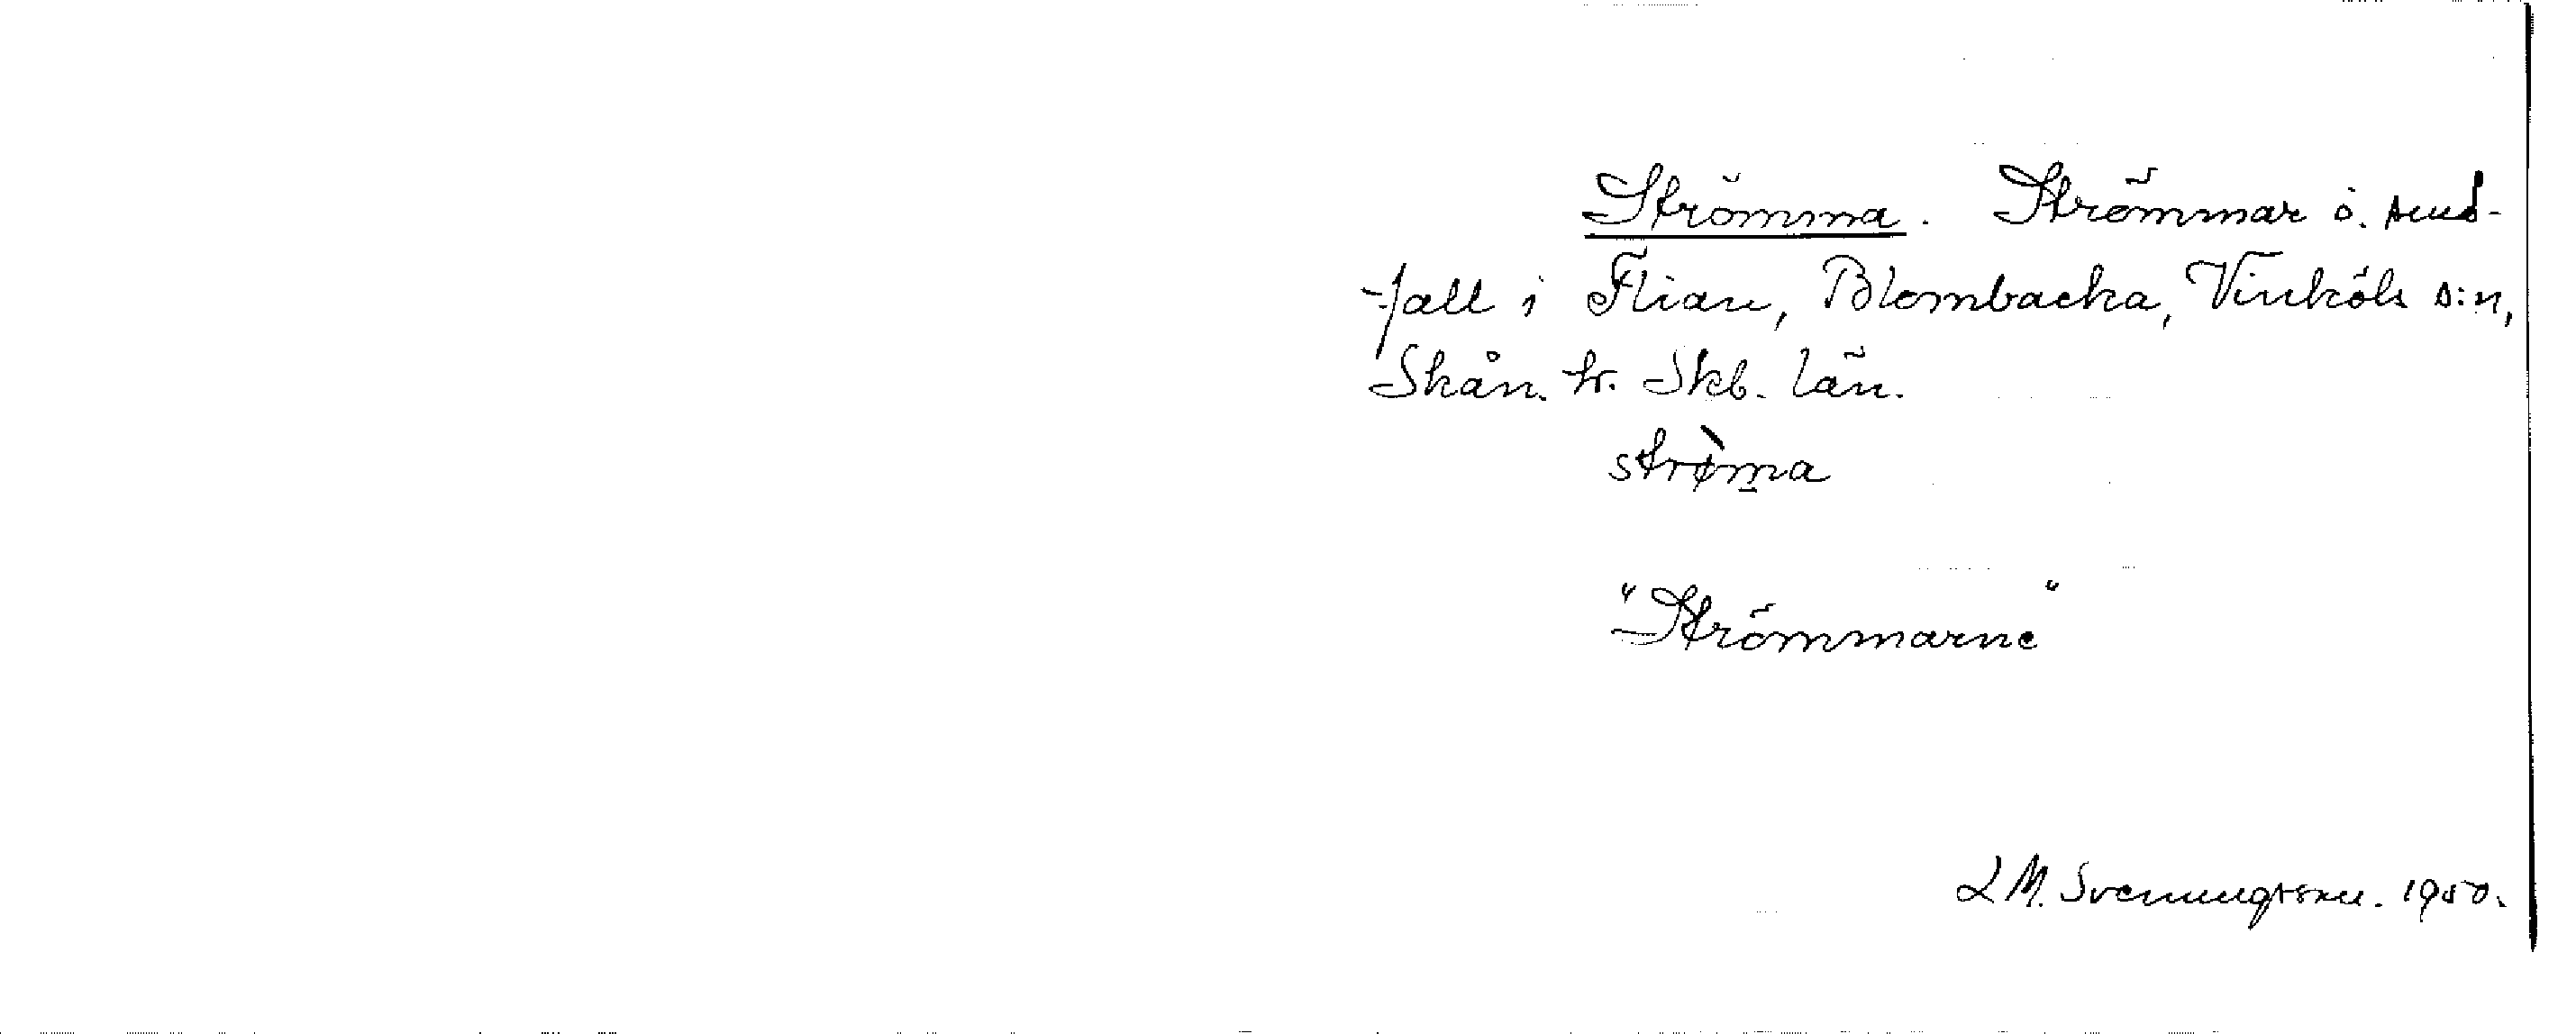 Strömma. Strömmar o. små-
fall i Flian, Blombacka, Vinköls s:n,
Skån. hr. Skb. län.
strø̀m̲a
"Strömmarne"
L M. Svenungsson. 1950.